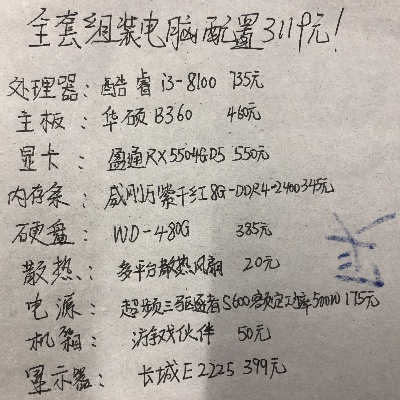 全套组装电脑配置3119元!
处理器：酷睿i3-8100 735元
主板：华硕B360 460元
显卡：盈通RX550-4GD5 550元
内存条：威刚万紫千红8G-DDR4-2400 345元
硬盘：WD-480G 385元
散热：多平台散热风扇 20元
电源：超频三驱逐者S600额定功率500W 175元
机箱：游戏伙伴 50元
显示器：长城E2225 399元